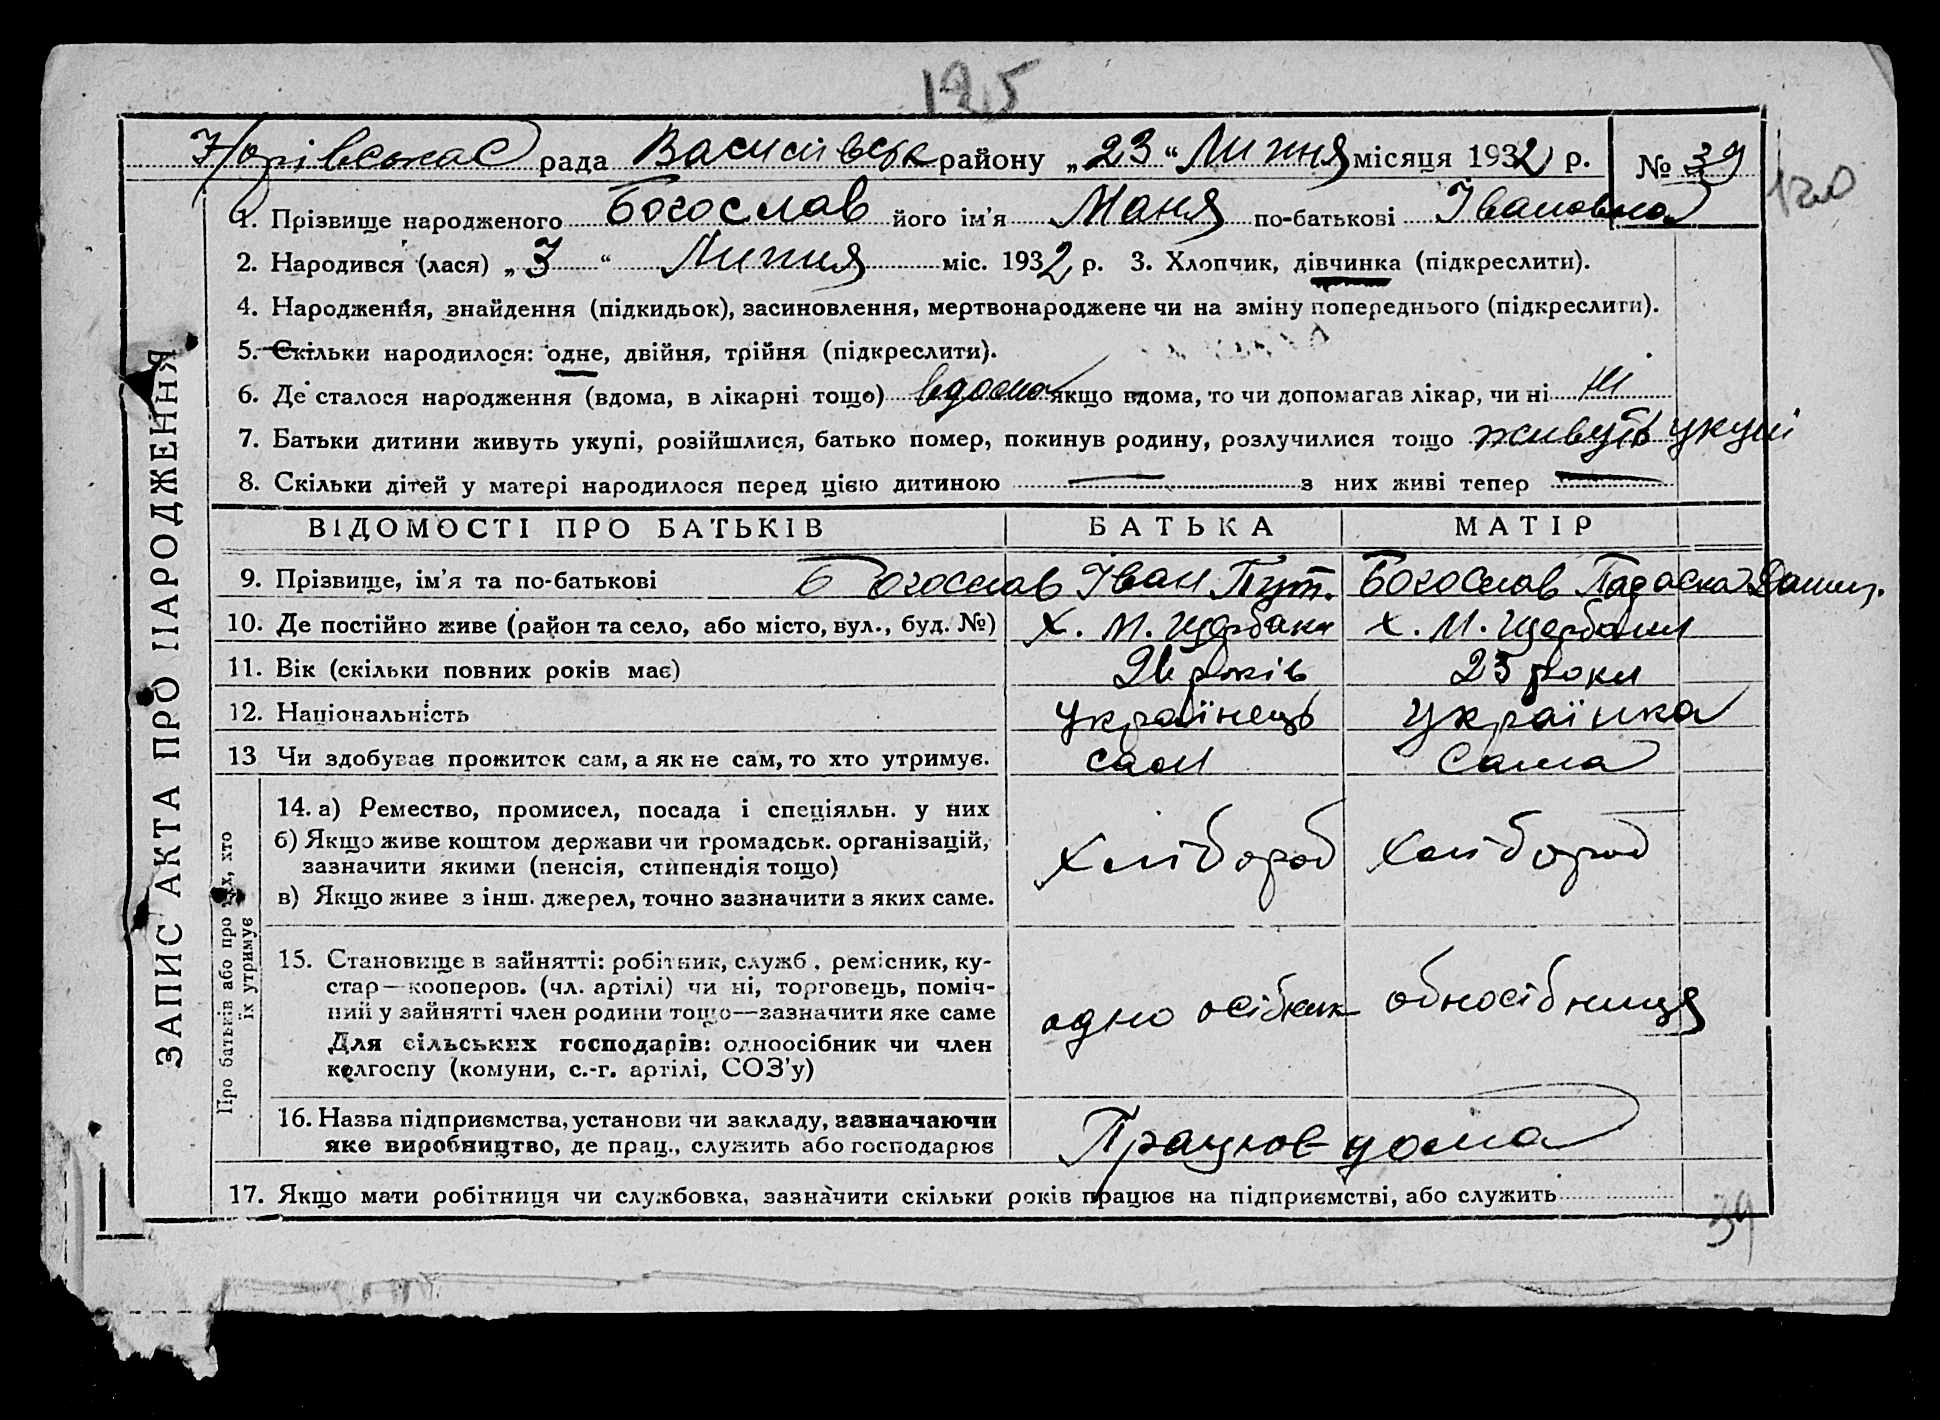 125
рада Василівськ району „23“ Липня місяця 1932 р. № 39
120
1. Прізвище народженого Богослав його ім’я Маня по-батькові Івановна
2. Народився (лася) „3“ Липня міс. 1932 р. 3. Хлопчик, дівчинка (підкреслити).
4. Народження, знайдення (підкидьок), засиновлення, мертвонароджене чи на зміну попереднього (підкреслити).
5. Скільки народилося: одне, двійня, трійня (підкреслити).
6. Де сталося народження (вдома, в лікарні тощо) вдома якщо вдома, то чи допомагав лікар, чи ні ні
7. Батьки дитини живуть укупі, розійшлися, батько помер, покинув родину, розлучилися тощо живуть укупі
8. Скільки дітей у матері народилося перед цією дитиною — з них живі тепер —
ВІДОМОСТІ ПРО БАТЬКІВ БАТЬКА МАТІР
9. Прізвище, ім’я та по-батькові Богослав Іван Богослав
10. Де постійно живе (район та село, або місто, вул., буд. №) х. М. Щербаки х. М. Щербаки
11. Вік (скільки повних років має) 26 років 23 роки
12. Національність Українець Українка
13 Чи здобуває прожиток сам, а як не сам, то хто утримує. сам Сама
14. а) Ремество, промисел, посада і спеціяльн. у них
б) Якщо живе коштом держави чи громадськ. організацій,
зазначити якими (пенсія, стипендія тощо)
хлібороб хлібороб
в) Якщо живе з інш. джерел, точно зазначити з яких саме.
15. Становище в зайнятті: робітник, служб., ремісник, ку-
стар—кооперов. (чл. артілі) чи ні, торговець, поміч-
ний у зайнятті член родини тощо—зазначити яке саме
одноосібник
Для сільських господарів: одноосібник чи член
колгоспу (комуни, с.-г. артілі, СОЗ’у)
16. Назва підприємства, установи чи закладу, зазначаючи
яке виробництво, де прац., служить або господарює
Працює дома
17. Якщо мати робітниця чи службовка, зазначити скільки років працює на підприємстві, або служить
39
ЗАПИС АКТА ПРО НАРОДЖЕННЯ
Про батьків або про тих, хто
їх утримує